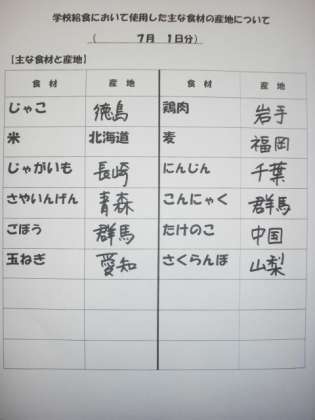 学校給食において使用した主な食材の産地について
( 7月 1日分)
【主な食材と産地】
食 材 産 地 食 材 産 地
じゃこ 徳島 鶏肉 岩手
米 北海道 麦 福岡
じゃがいも 長崎 にんじん 千葉
さやいんげん 青森 こんにゃく 群馬
ごぼう 群馬 たけのこ 中国
玉ねぎ 愛知 さくらんぼ 山梨